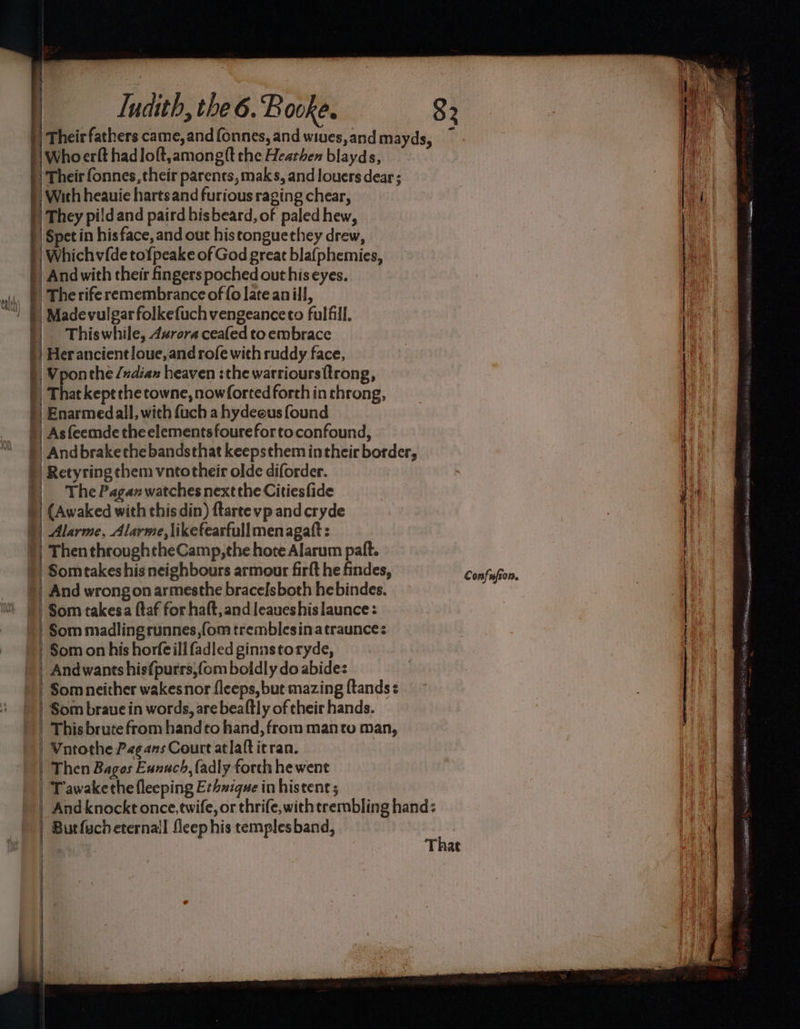 Iudith, the 6. Booke. 83
Their fathers came, and ſonnes, and wiues, and mayds,
Who erſt had loſt, amongſt the Heathen blayds,
Their ſonnes, their parents, maks, and louers dear;
With heauie harts and furious raging chear,
They pild and paird his beard, of paled hew,
Spet in his face, and out his tongue they drew,
Which vſde to ſpeake of God great blaſphemies,
And with their fingers poched out his eyes.
The rife remembrance of ſo late an ill,
Made vulgar folke ſuch vengeance to fulfill.
This while, Aurora ceaſed to embrace
Her ancient loue, and roſe with ruddy face,
Vpon the Indian heaven: the warriours ſtrong,
That kept the towne, now ſorted forth in throng,
Enarmed all, with ſuch a hydeous ſound
As ſeemde the elements foure for to confound,
And brake the bands that keeps them in their border,
Retyring them vnto their olde diſorder.
The Pagan watches next the Cities ſide
(Awaked with this din) ſtarte vp and cryde
Alarme, Alarme, like fearfull men agaſt:
Then through the Camp, the hote Alarum paſt.
Som takes his neighbours armour firſt he findes,
Confuſion.
And wrong on armes the bracelſs both he bindes.
Som takes a ſtaf for haſt, and leaues his launce:
Som madling runnes, ſom trembles in a traunce:
Som on his horſe ill ſadled ginns to ryde,
And wants his ſpurrs, ſom boldly do abide:
Som neither wakes nor ſleeps, but mazing ſtands:
Som braue in words, are beaſtly of their hands.
This brute from hand to hand, from man to man,
Vnto the Pagans Court at laſt it ran.
Then Bagos Eunuch, ſadly forth he went
T'awake the ſleeping Ethnique in his tent;
And knockt once, twiſe, or thriſe, with trembling hand:
But ſuch eternall ſleep his temples band,
That